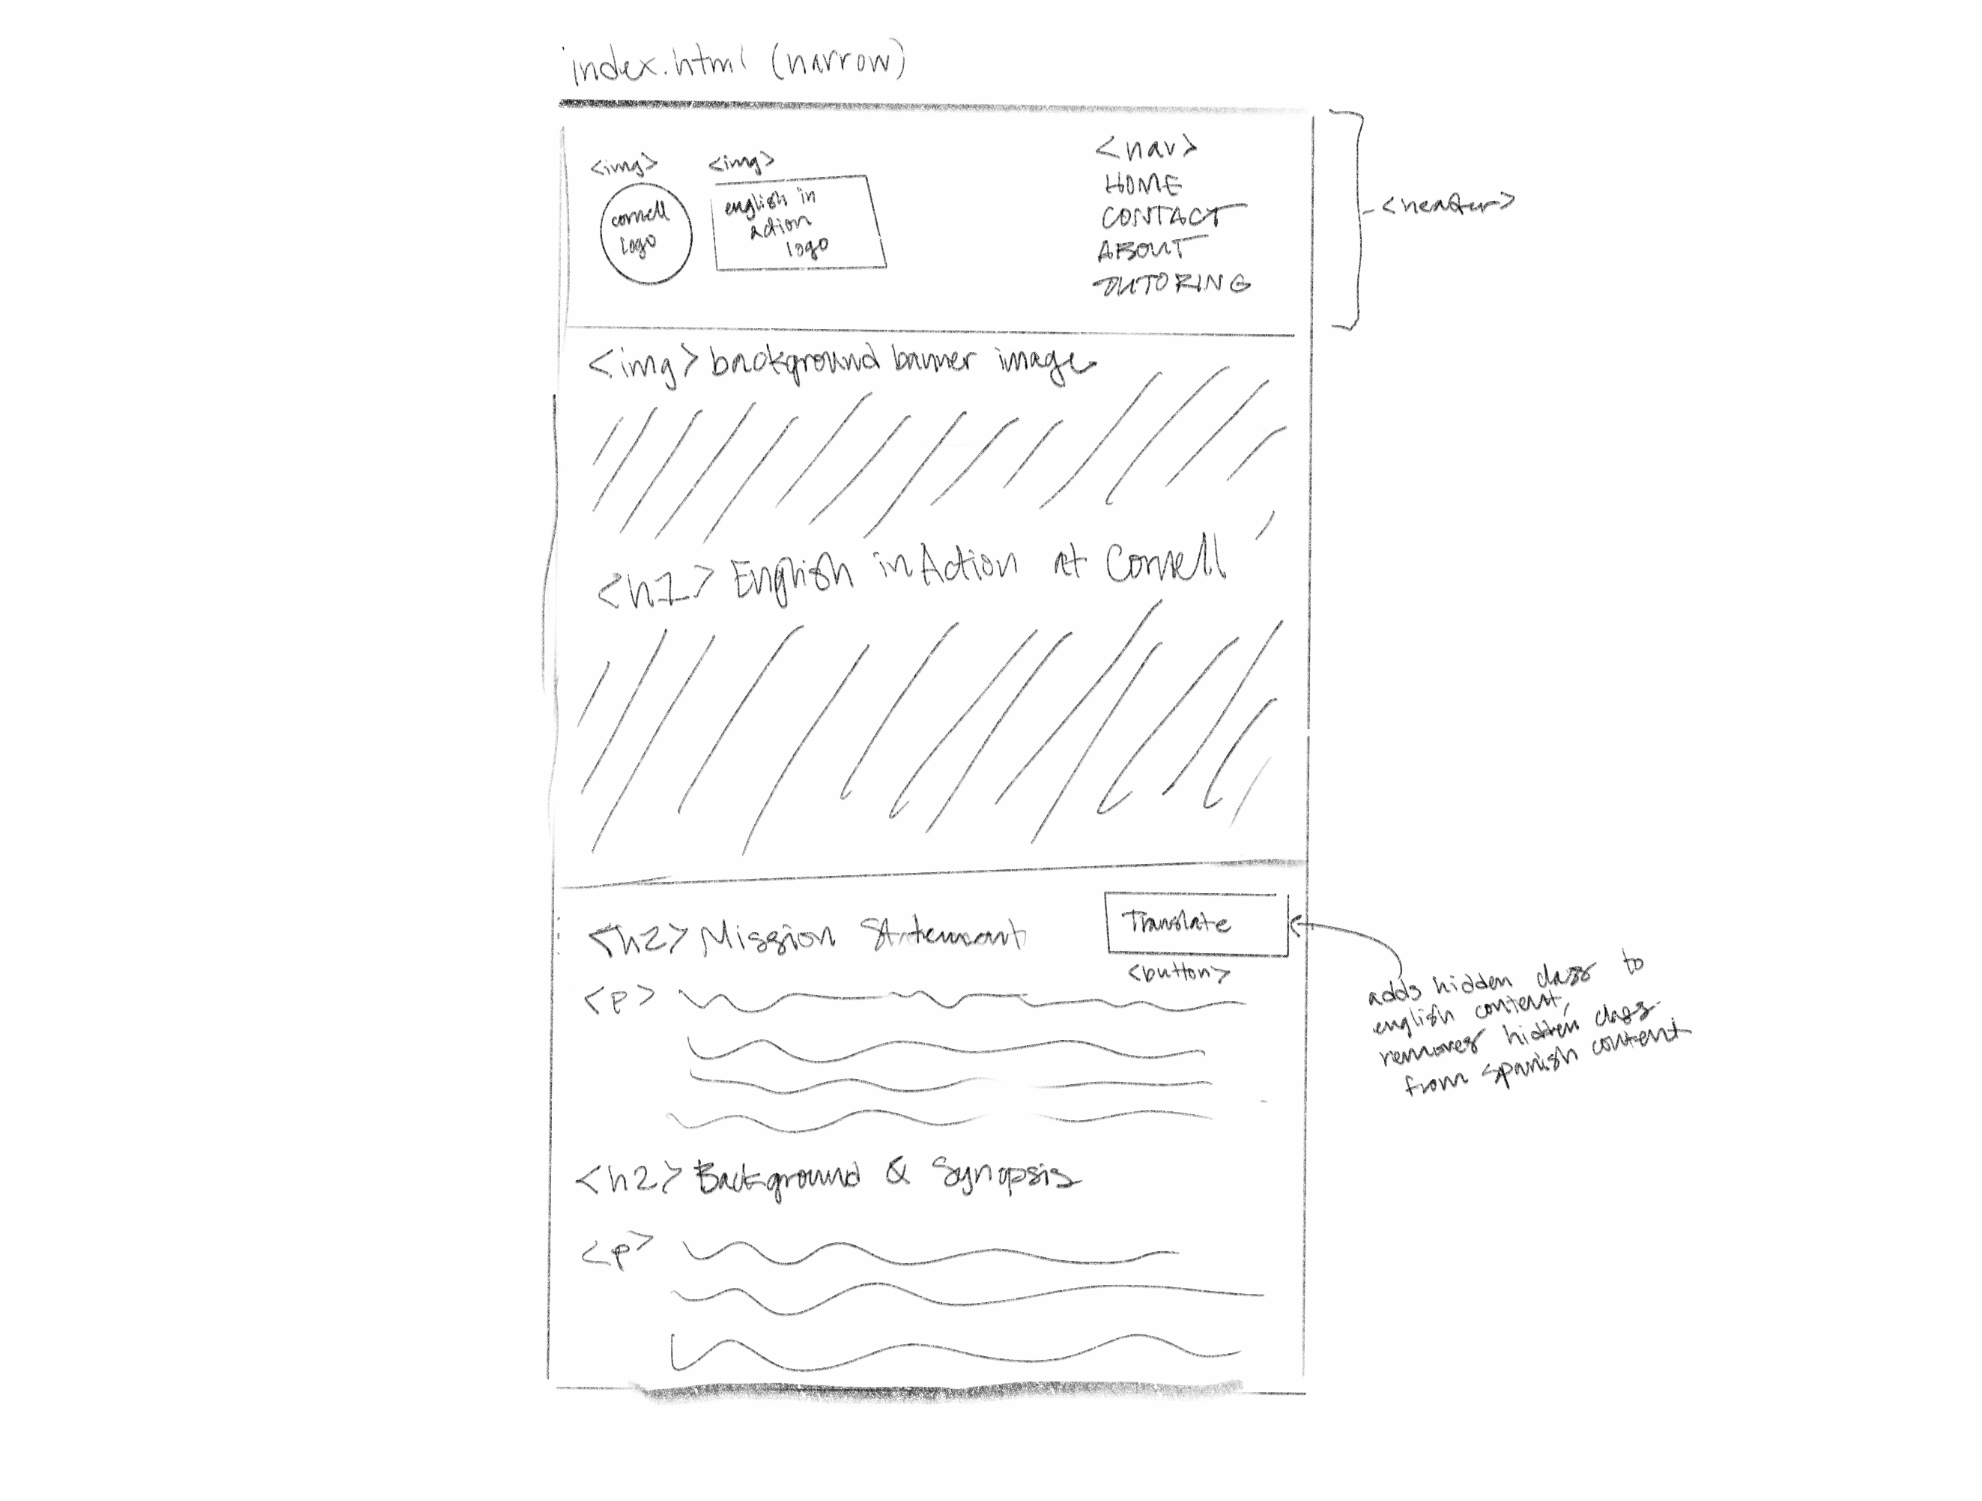 index.html (narrow)
<img>
<img>
cornell
logo
english in
action
logo
<nav>
HOME
CONTACT
ABOUT
TUTORING
<header>
<img> background banner image
<h1> English in Action at Cornell
<h2> Mission Statement
Translate
<button>
adds hidden class to
english content,
removes hidden class
from spanish content
<p>
<h2> Background & Synopsis
<p>